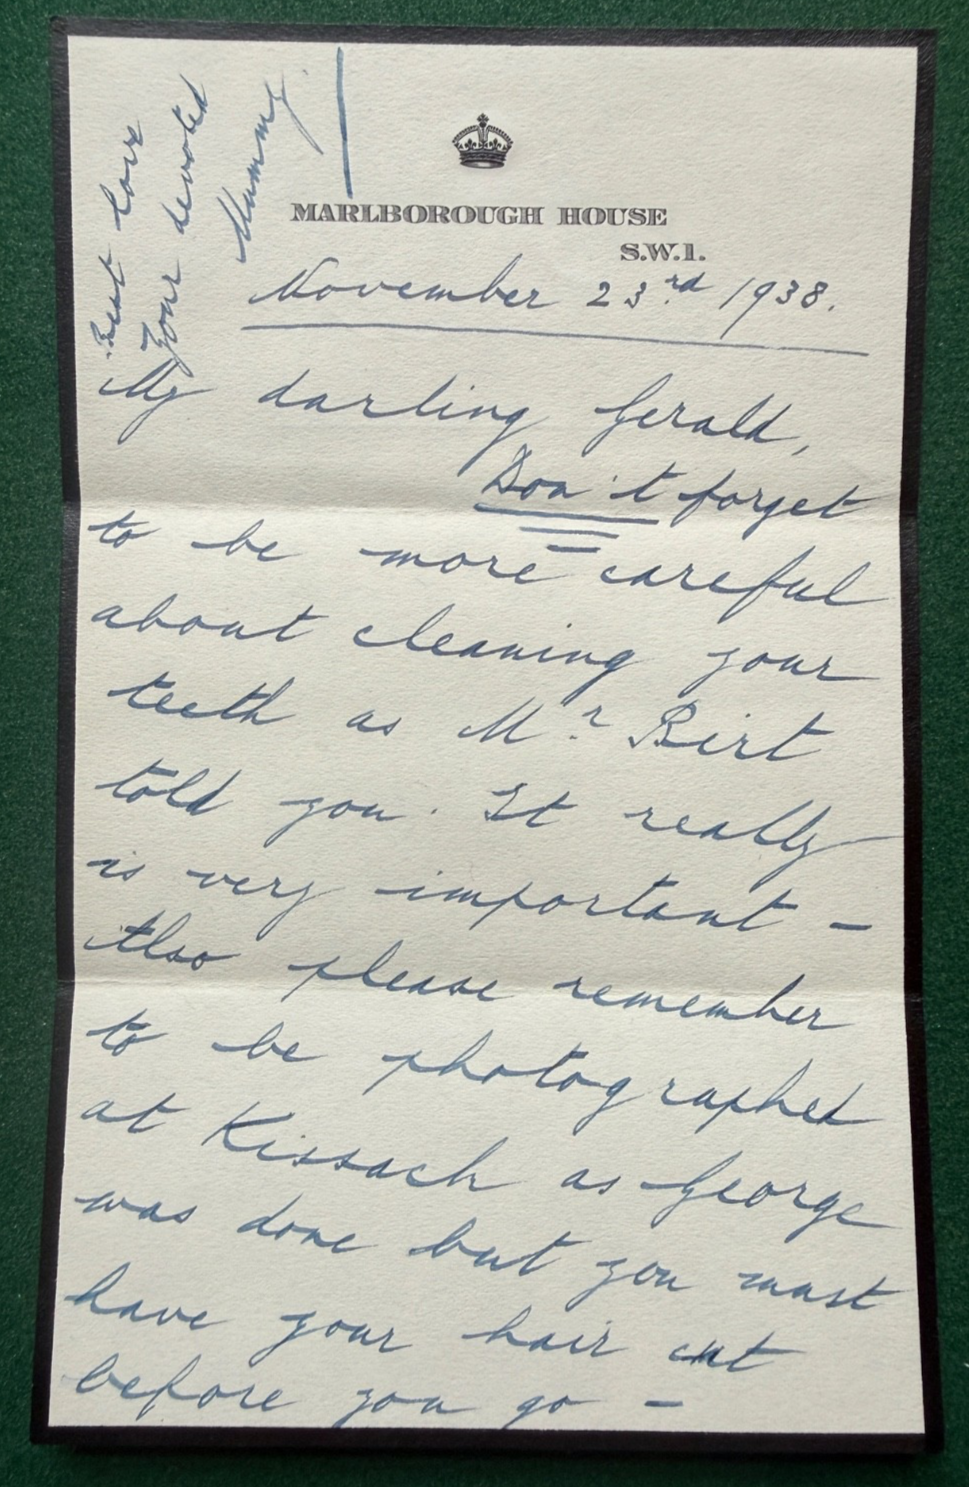 MARLBOROUGH HOUSE
S.W.1.
November 23rd 1938.
My darling Gerald,
Don't forget
to be more careful
about cleaning your
teeth as Mr Birt
told you. It really
is very important -
Also please remember
to be photographed
at Kissack as George
was done but you must
have your hair cut
before you go -
Best love
Your devoted
Mummy.